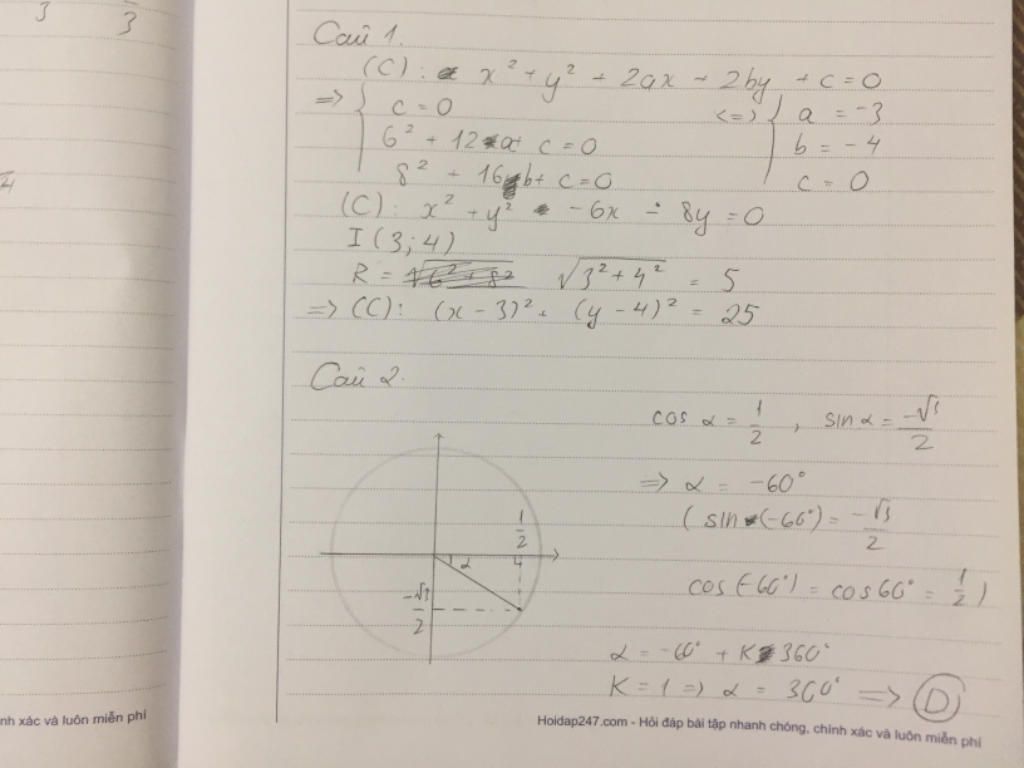 3
3
Câu 1.
(C): x² + y² + 2ax + 2by + c = 0
=> { c = 0
6² + 12a + c = 0
8² + 16b + c = 0
<=> { a = -3
b = -4
c = 0
(C): x² + y² - 6x - 8y = 0
I (3; 4)
R = √(3² + 4²) = 5
=> (C): (x - 3)² + (y - 4)² = 25
Câu 2.
cos α = 1/2, sin α = -√3/2
=> α = -60°
(sin(-60°) = -√3/2
cos(-60°) = cos60° = 1/2)
1/2
α
-√3/2
α = -60° + K360°
K = 1 => α = 300° => D
nh xác và luôn miễn phí
Hoidap247.com - Hỏi đáp bài tập nhanh chóng, chính xác và luôn miễn phí